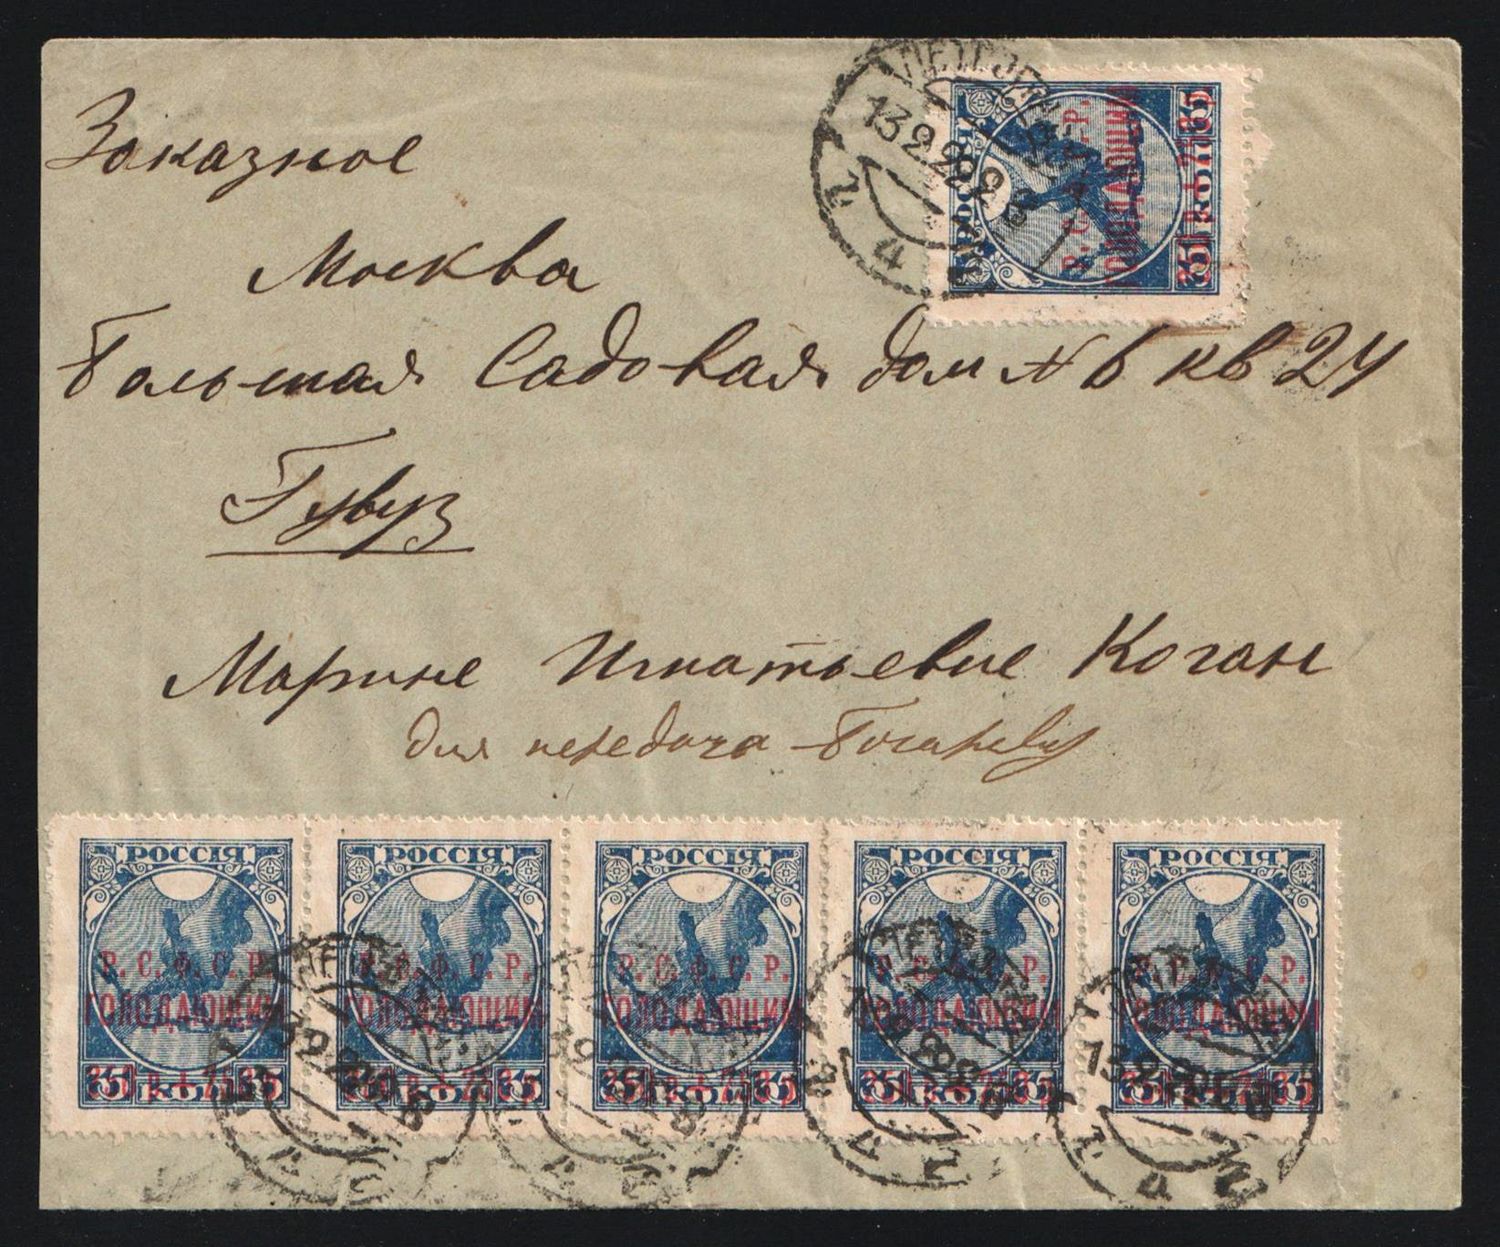 Заказное
Москва
Большая Садовая дом № 6 кв 24
Главуз
Марине Игнатьевне Коган
для передачи
РОССIЯ
Р. С. Ф. С. Р.
ГОЛОДАЮЩИМ
35 КОП 35
13.9.22
РОССIЯ РОССIЯ РОССIЯ РОССIЯ РОССIЯ
Р. С. Ф. С. Р. Р. С. Ф. С. Р. Р. С. Ф. С. Р. Р. С. Ф. С. Р. Р. С. Ф. С. Р.
ГОЛОДАЮЩИМ ГОЛОДАЮЩИМ ГОЛОДАЮЩИМ ГОЛОДАЮЩИМ ГОЛОДАЮЩИМ
35 КОП 35 35 КОП 35 35 КОП 35 35 КОП 35 35 КОП 35